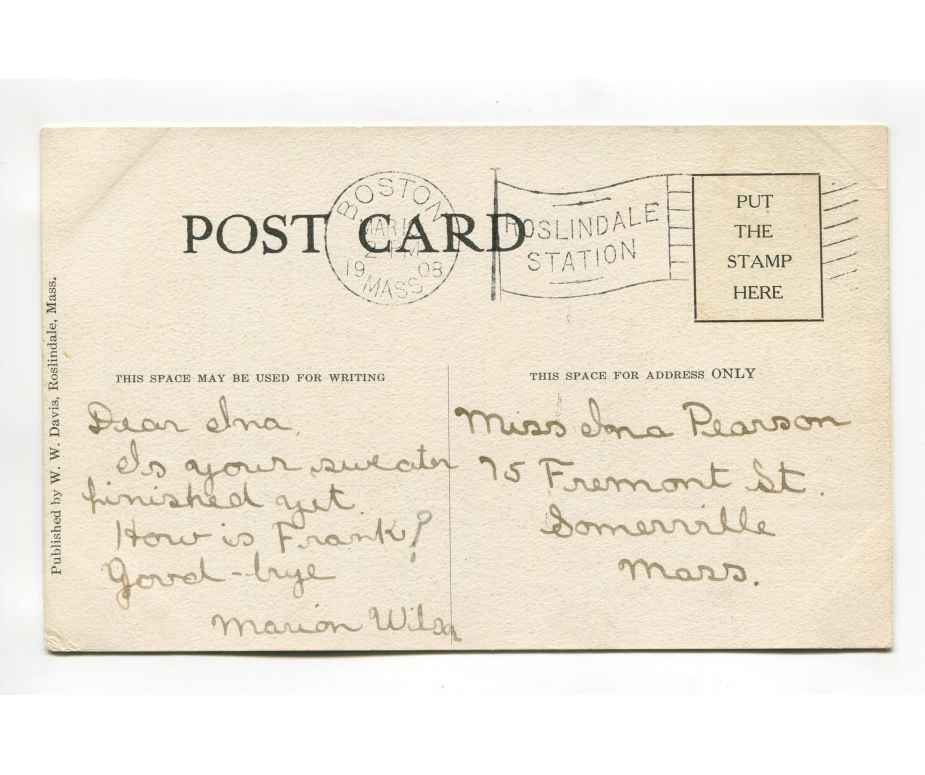 POST CARD
BOSTON
MAR
19 08
MASS
ROSLINDALE
STATION
PUT
THE
STAMP
HERE
Published by W. W. Davis, Roslindale, Mass.
THIS SPACE MAY BE USED FOR WRITING
Dear Ina,
Is your sweater
finished yet
How is Frank?
Good-bye
Marion
THIS SPACE FOR ADDRESS ONLY
Miss Ina Pearson
75 Fremont St.
Somerville
Mass.